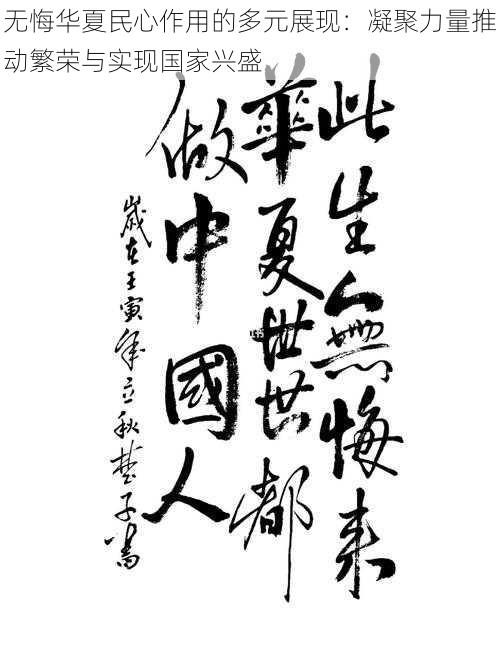 无悔华夏民心作用的多元展现：凝聚力量推
动繁荣与实现国家兴盛
此生無悔来
華夏世世都
做中國人
歲在壬寅年立秋楚子